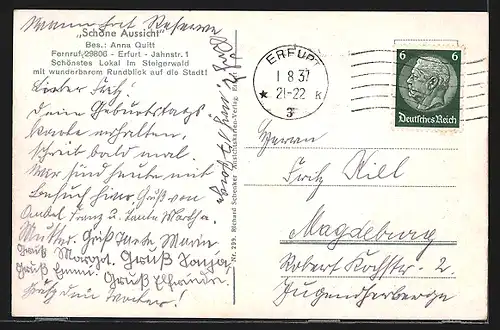 Wann hat Reserve
„Schöne Aussicht"
Bes.: Anna Quitt
Fernruf 29806 - Erfurt - Jahnstr. 1
Schönstes Lokal im Steigerwald
mit wunderbarem Rundblick auf die Stadt!
Lieber Fritz!
Deine Geburtstags
Karte erhalten.
schreib bald mal.
Wir sind heute mit
Besuch hier Gruß von
Onkel Franz u. Tante Martha.
Mutter. Gruß Tante Marie
Gruß Margot. Gruß Sonja
Gruß Emmi. Gruß Elfriede
Nr. 299. Richard Schenker Ansichtskarten-Verlag, Erfurt
ERFURT
1 8 37
21-22 K
* 3
6 6
Deutsches Reich
Herrn
Fritz Kill
Magdeburg
Robert Kochstr. 2.
Jugendherberge